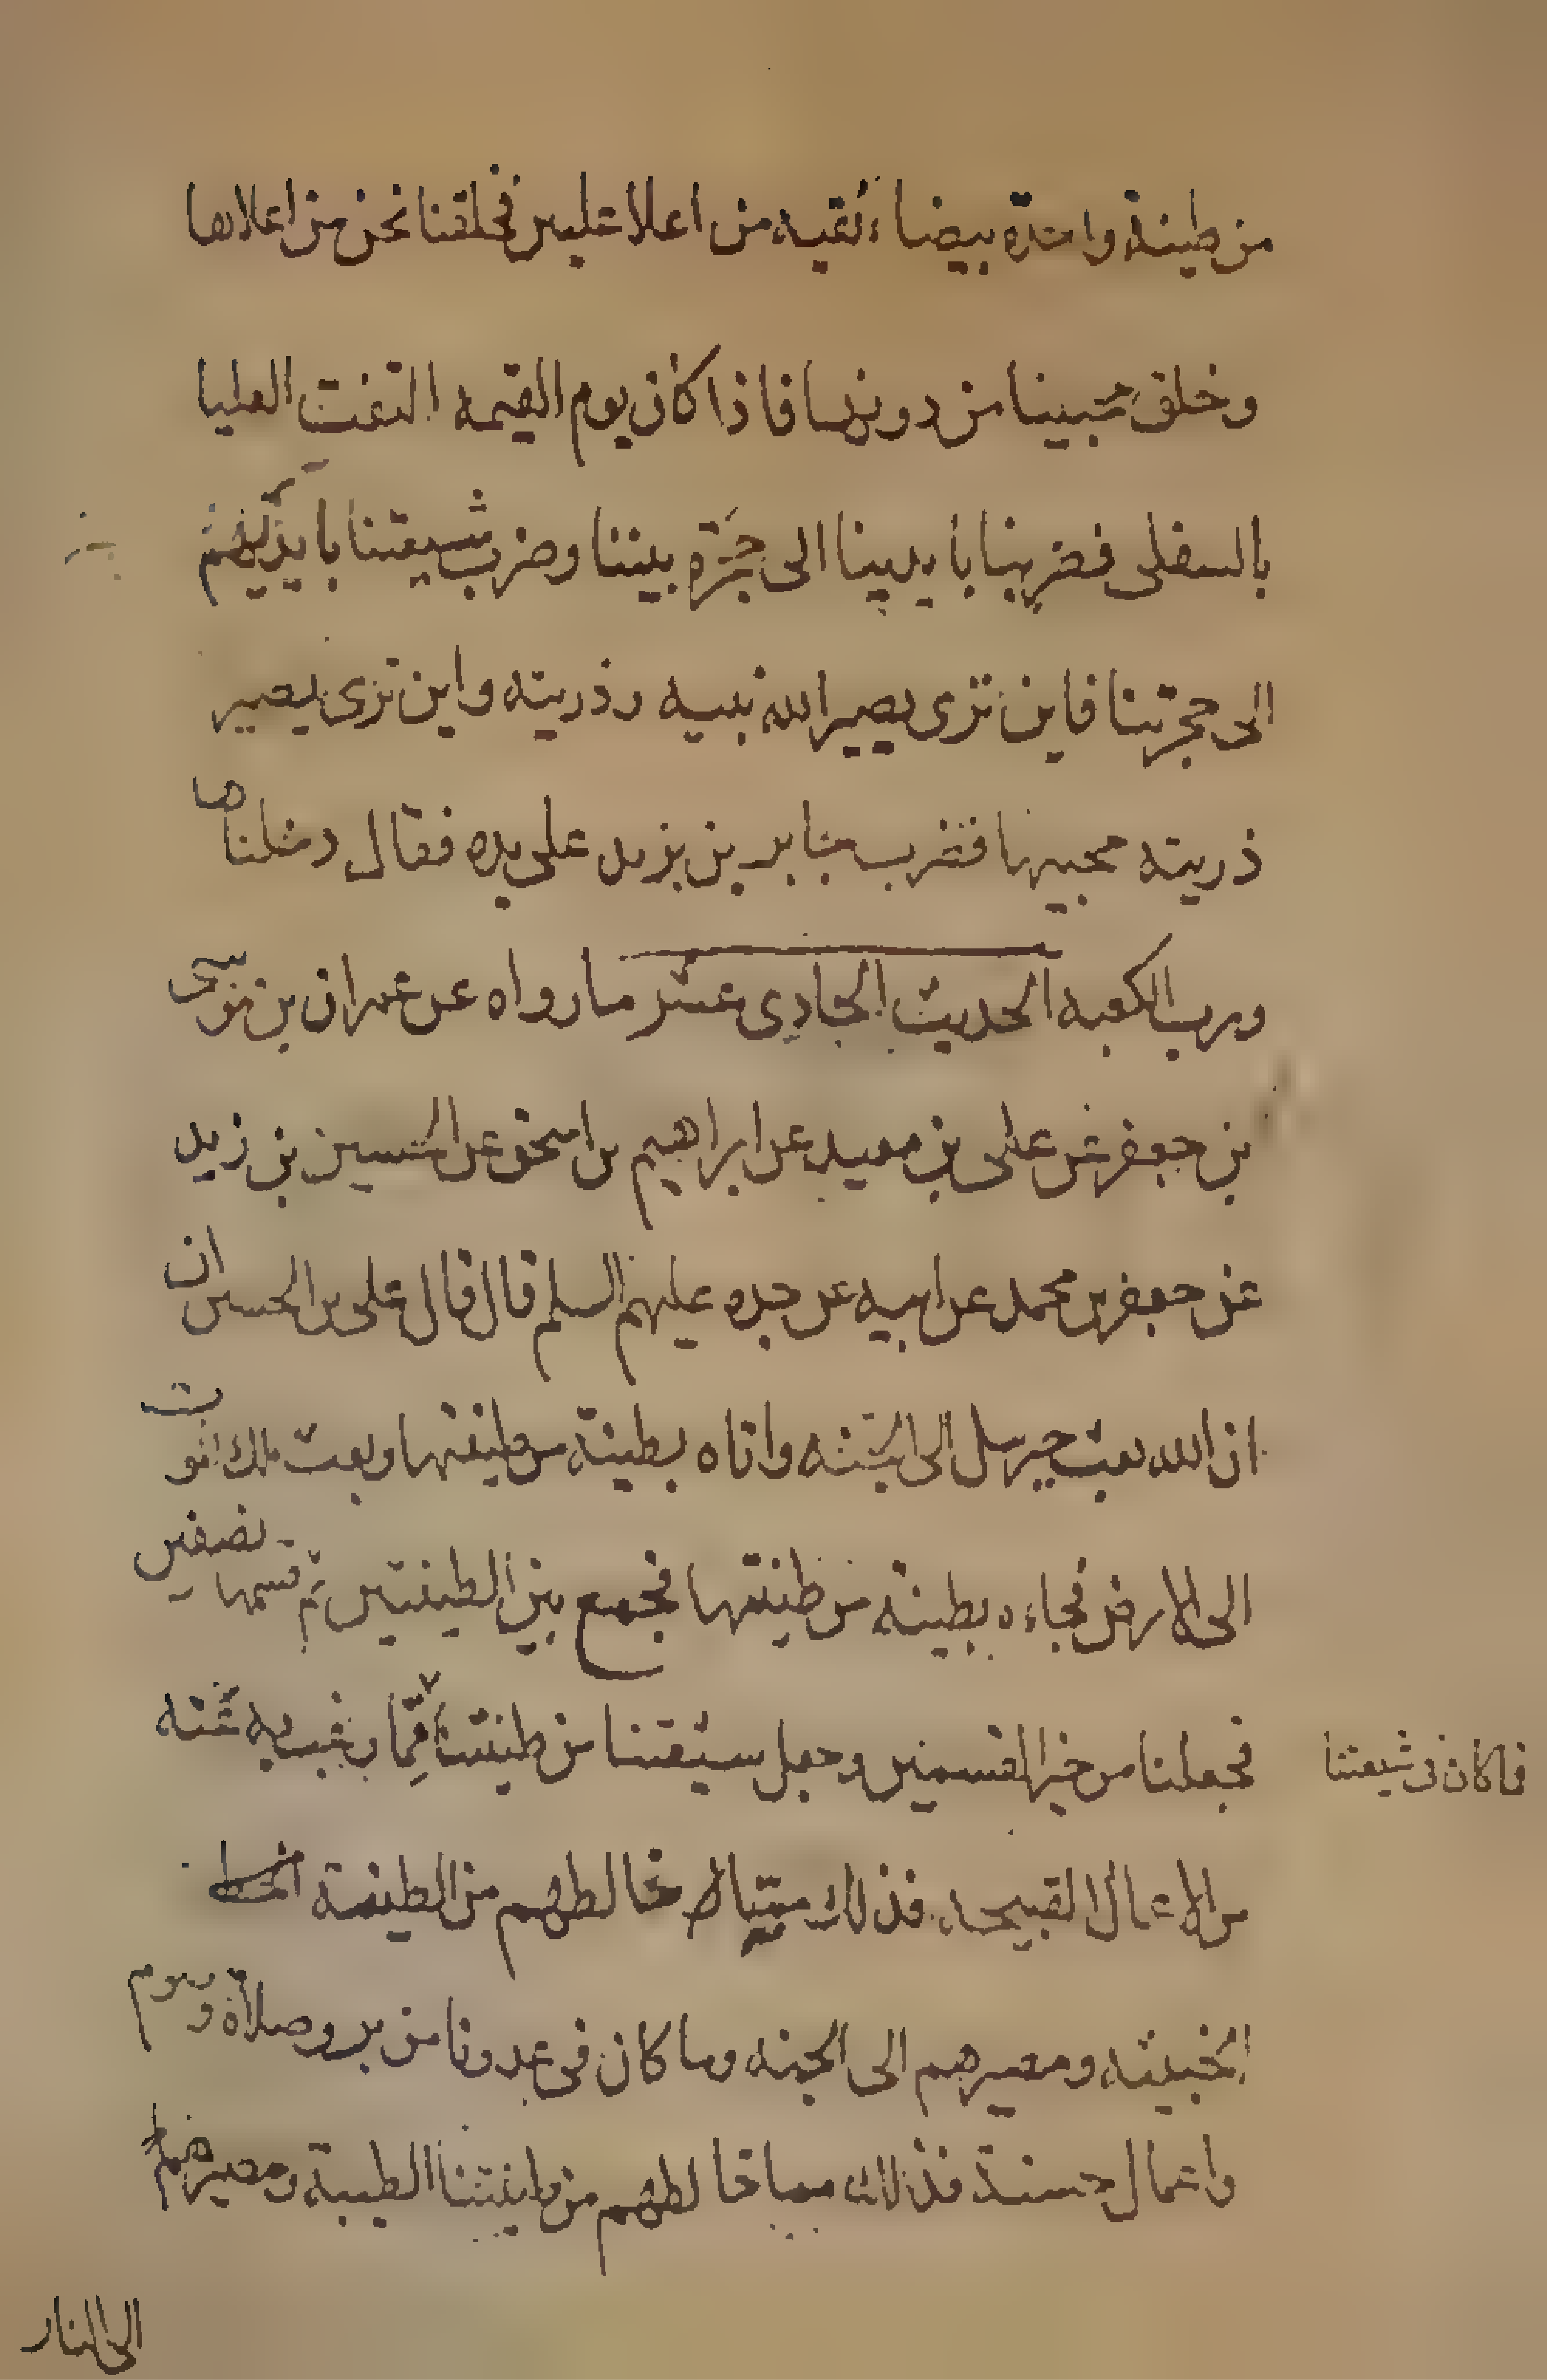 من طينة واحدة بيضاء نقيه من اعلا عليين فخلقنا نحن من اعلاها
وخلق محبينا من دونها فاذا كان يوم القيمه التفت العليا
بالسفلى فضربنا بايدينا الى حجزة نبينا وضرب شيعتنا بايديهم
الى حجزتنا فاين ترى يصير الله نبيه وذريته واين ترى يصير
ذريته محبيها فضرب جابر بن يزيد على يده فقال دخلناها
ورب الكعبه الحديث الحادى عشر ما رواه عن عمران بن موسى
بن جعفر عن على بن معبد عن ابراهيم بن اسحق عن الحسين بن زيد
عن جعفر بن محمد عن ابيه عن جده عليهم السلم قال قال على بن الحسين ان
ان الله بعث جبرئيل الى الجنه واتاه بطينة من طينتها وبعث ملك الموت
الى الارض فجاءه بطينة من طينتها فجمع بين الطينتين ثم قسمها نصفين
فجعلنا من خير القسمين وجعل شيعتنا من طينتنا مما رغب به عنه
فما كان فى شيعتنا
من الاعمال القبيحه فذلك مما خالطهم من الطينة
الخبيثه ومصيرهم الى الجنه وما كان فى عدونا من بر وصلاة وصوم
واعمال حسنة فذلك مما خالطهم من طينتنا الطيبة ومصيرهم
الى النار